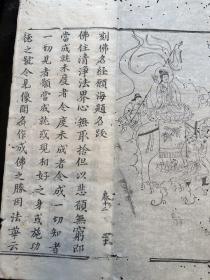 刻佛名經願海題名䟦
佛住清淨法界心無取捨但以悲願無窮即
當成就未度者令度未成者令成一切知者
一切見者願當成就或現相好之身或施功
德之號令見像聞名作成佛之勝因法華云
卷十二